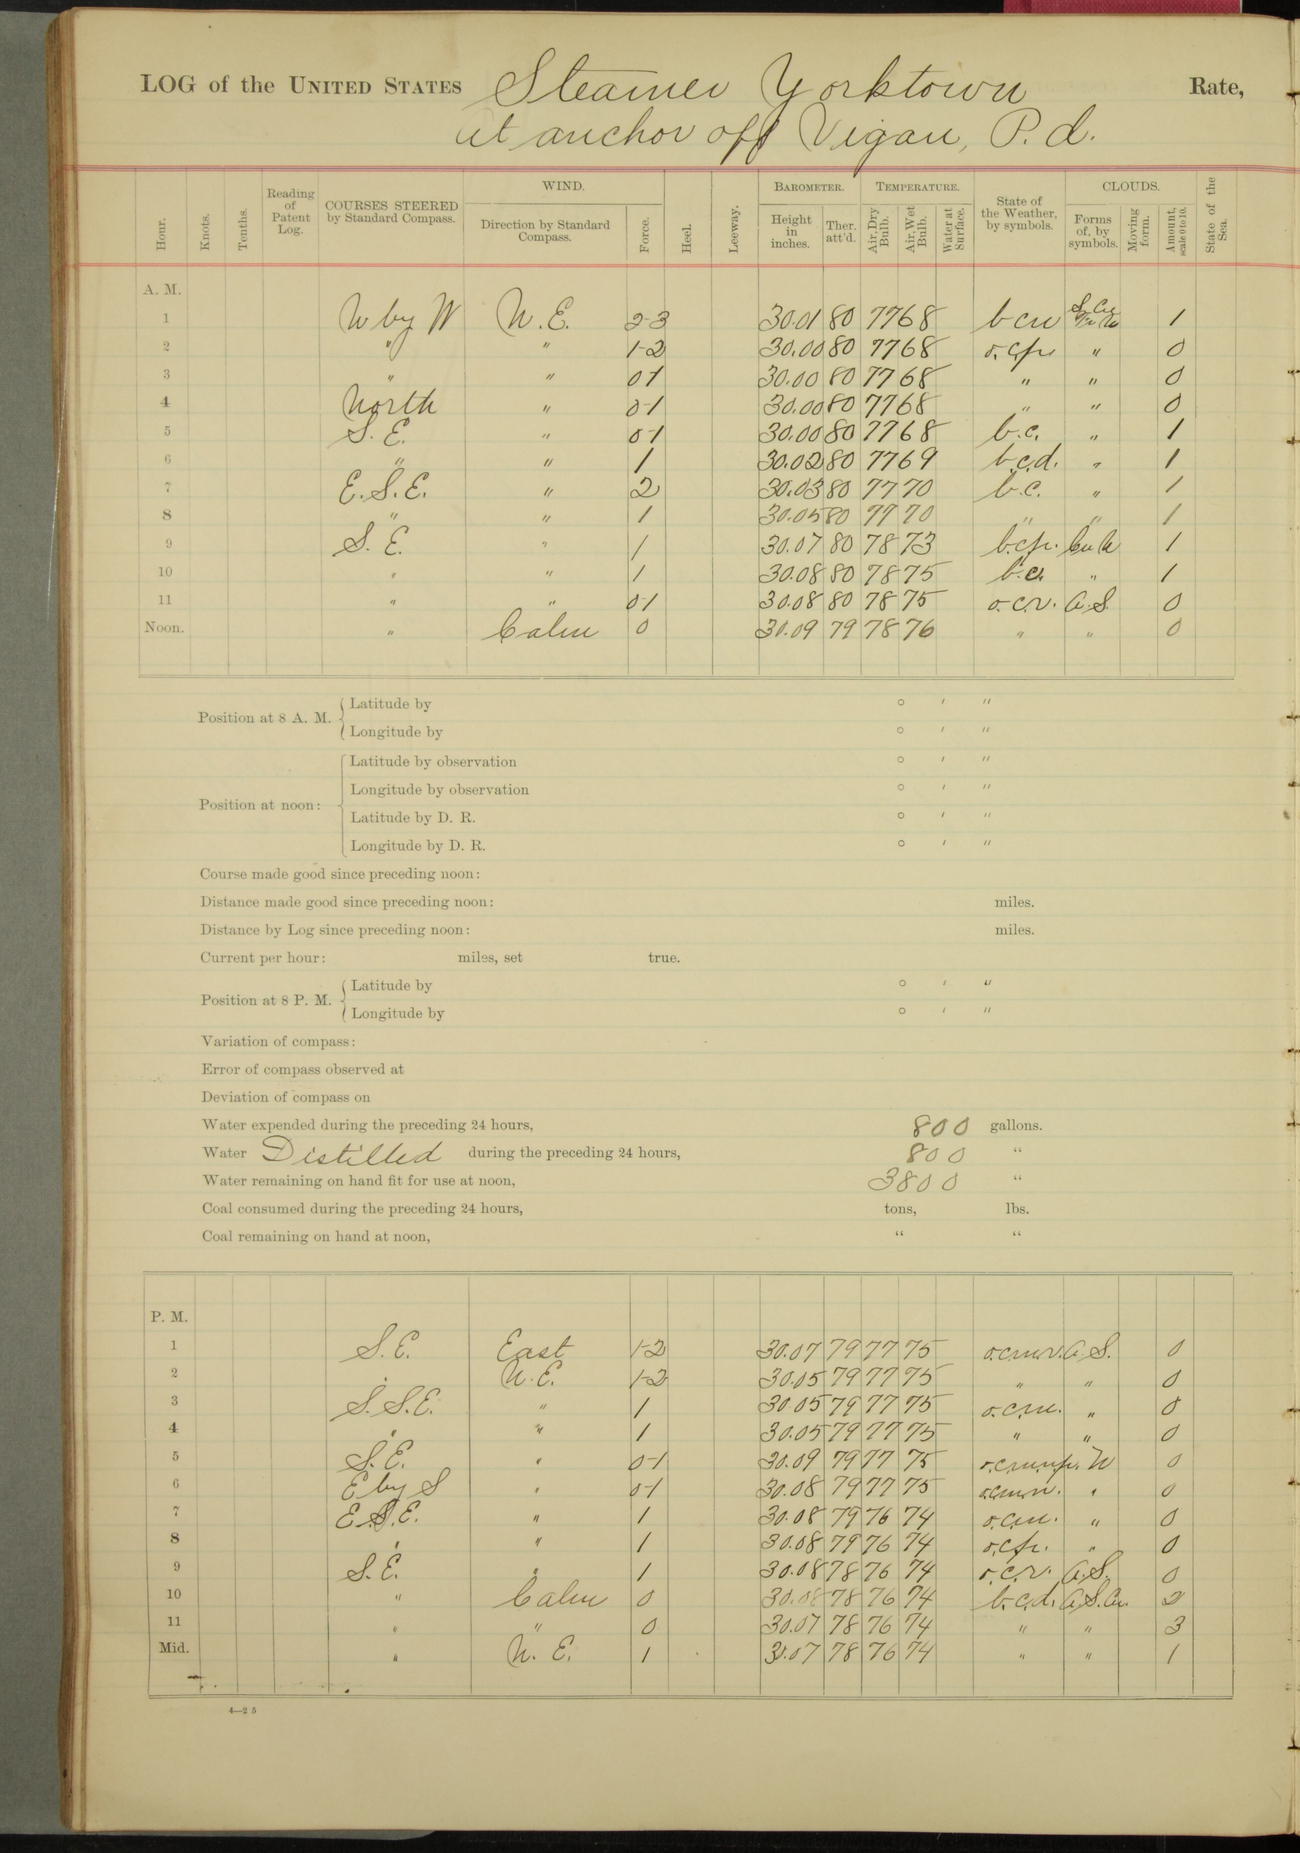 LOG of the UNITED STATES Steamer Yorktown Rate,
At anchor off Vigan, P.I.
Hour. Knots. Tenths. Reading of Patent Log. COURSES STEERED by Standard Compass. WIND. Direction by Standard Compass. Force. Heel. Leeway. BAROMETER. Height in inches. Ther. att'd. TEMPERATURE. Air, Dry Bulb. Air, Wet Bulb. Water at Surface. State of the Weather, by symbols. CLOUDS. Forms of, by symbols. Moving form. Amount, scale 0 to 10. State of the Sea.
A. M.
1 N by W N.E. 2-3 30.01 80 77 68 1
2 " " 1-2 30.00 80 77 68 " 0
3 " " 0-1 30.00 80 77 68 " " 0
4 North " 0-1 30.00 80 77 68 " " 0
5 S.E. " 0-1 30.00 80 77 68 b.c. " 1
6 " " 1 30.02 80 77 69 b.c.d. " 1
7 E.S.E. " 2 30.03 80 77 70 b.c. " 1
8 " " 1 30.05 80 77 70 " " 1
9 S.E. " 1 30.07 80 78 73 b.c.p. 1
10 " " 1 30.08 80 78 75 " 1
11 " " 0-1 30.08 80 78 75 o.c.r. A.S. 0
Noon. " Calm 0 30.09 79 78 76 " " 0
Position at 8 A. M. { Latitude by ° ′ ″
Longitude by ° ′ ″
Position at noon: { Latitude by observation ° ′ ″
Longitude by observation ° ′ ″
Latitude by D. R. ° ′ ″
Longitude by D. R. ° ′ ″
Course made good since preceding noon:
Distance made good since preceding noon: miles.
Distance by Log since preceding noon: miles.
Current per hour: miles, set true.
Position at 8 P. M. { Latitude by ° ′ ″
Longitude by ° ′ ″
Variation of compass:
Error of compass observed at
Deviation of compass on
Water expended during the preceding 24 hours, 800 gallons.
Water Distilled during the preceding 24 hours, 800 "
Water remaining on hand fit for use at noon, 3800 "
Coal consumed during the preceding 24 hours, tons, lbs.
Coal remaining on hand at noon, " "
P. M.
1 S.E. East 1-2 30.07 79 77 75 o.c.m.r. A.S. 0
2 " N.E. 1-2 30.05 79 77 75 " " 0
3 S.S.E. " 1 30.05 79 77 75 o.c.m. " 0
4 " " 1 30.05 79 77 75 " " 0
5 S.E. " 0-1 30.09 79 77 75 N 0
6 E by S " 0-1 30.08 79 77 75 o.c.m.r. " 0
7 E.S.E. " 1 30.08 79 76 74 o.c.m. " 0
8 " " 1 30.08 79 76 74 o.c.p. " 0
9 S.E. " 1 30.08 78 76 74 o.c.r. A.S. 0
10 " Calm 0 30.08 78 76 74 b.c.d. A.S.Cu. 2
11 " " 0 30.07 78 76 74 " " 3
Mid. " N.E. 1 30.07 78 76 74 " " 1
4—25